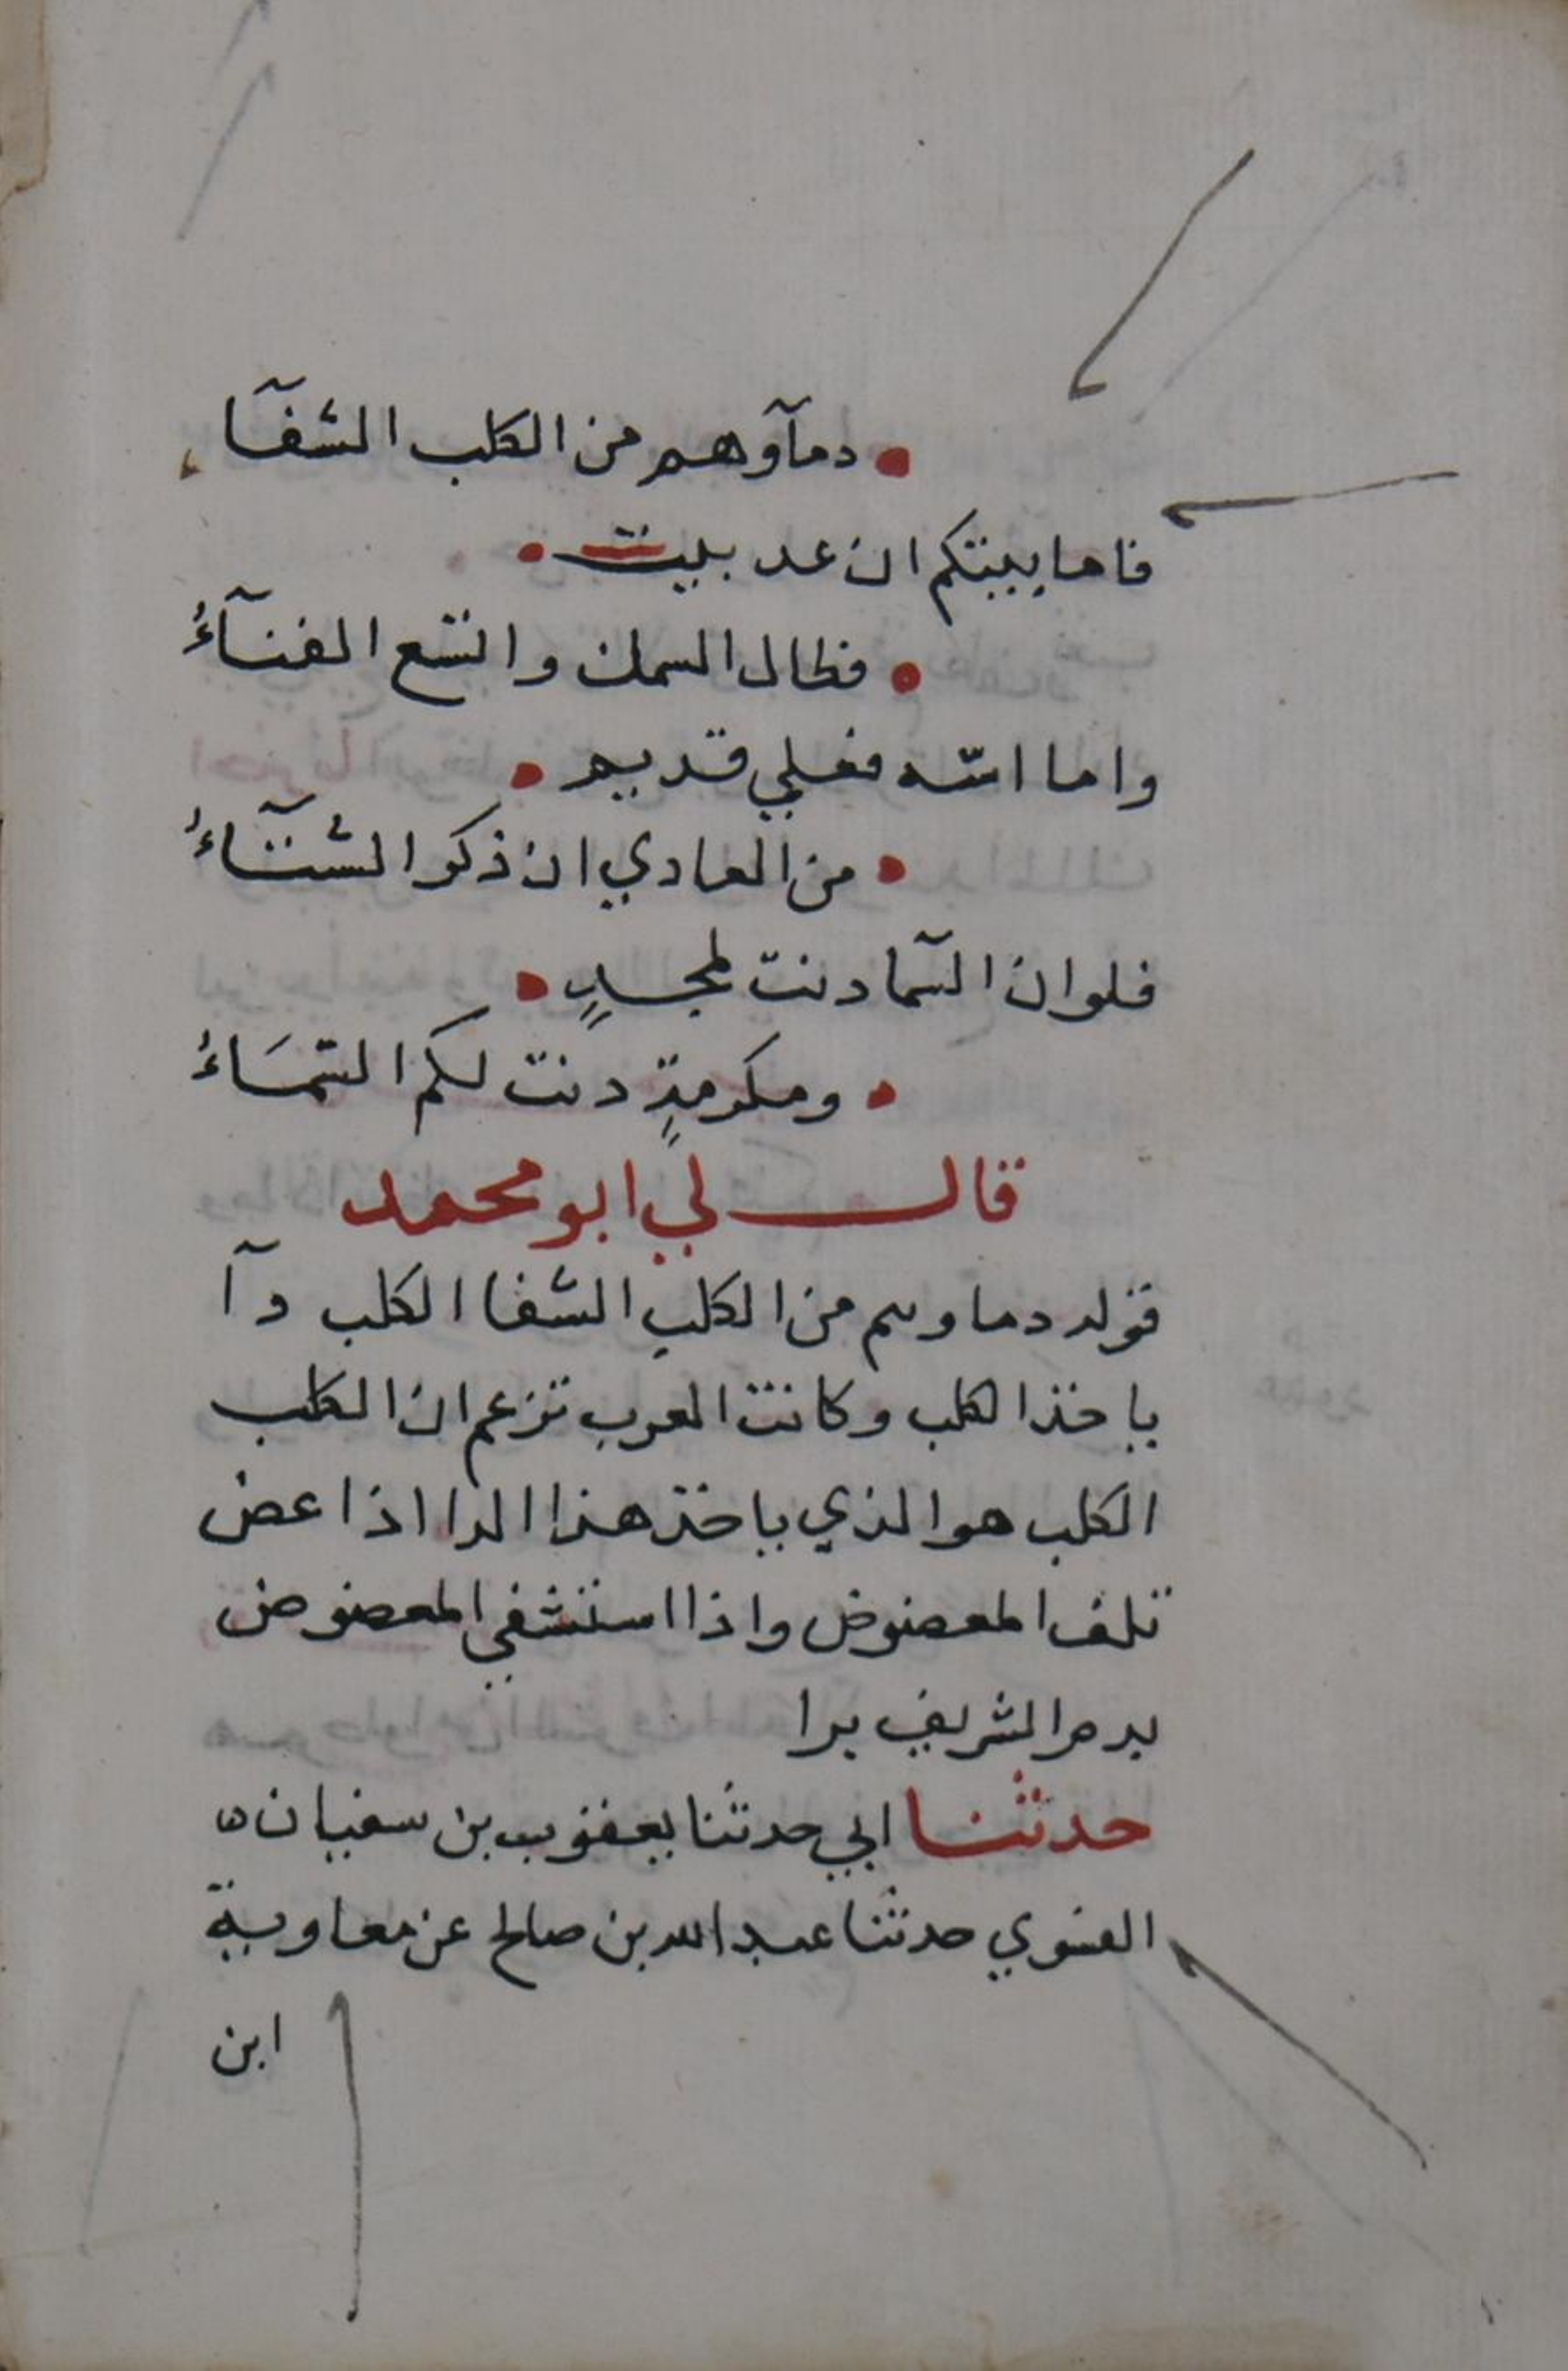 دمآوهم من الكلب الشفآء
فاما بيتكم ان عد بيت
فطال السمك واتسع الفنآءُ
واما اسّه فعلي قديم
من العادي ان ذكر الشتآءُ
فلو ان السّما دنت لمجدٍ
ومكرمةٍ دنت لكم السّمَاءُ
قال لي ابو محمد
قوله دماوهم من الكلب الشفا الكلب دآ
ياخذ الكلب وكانت العرب تزعم ان الكلب
الكلب هو الذي ياخذه هذا الدا اذا عض
تلف المعضوض واذا استشفي المعضوض
بدم الشريف برا
حدثنا ابي حدثنا يعقوب بن سفيان
الفسوي حدثنا عبد الله بن صالح عن معاوية
ابن